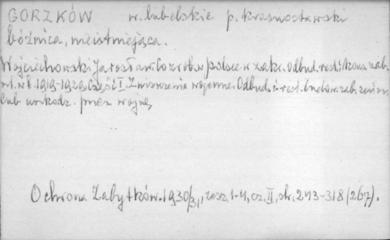 GORZKÓW w. lubelskie p. krasnostawski
bóżnica, nieistniejąca.
Wojciechowski Jarosław: Co zrob. w Polsce w zakr. odbud. rest. i kons. zab.
w l. 1919-1929. Część I. Zniszczenia wojenne. Odbud. i rest. budow. zab. zniszcz.
lub uszkodz. przez wojnę,
Ochrona Zabytków. 1930/1, zesz. 1-4, cz. II, str. 243-318 (267).